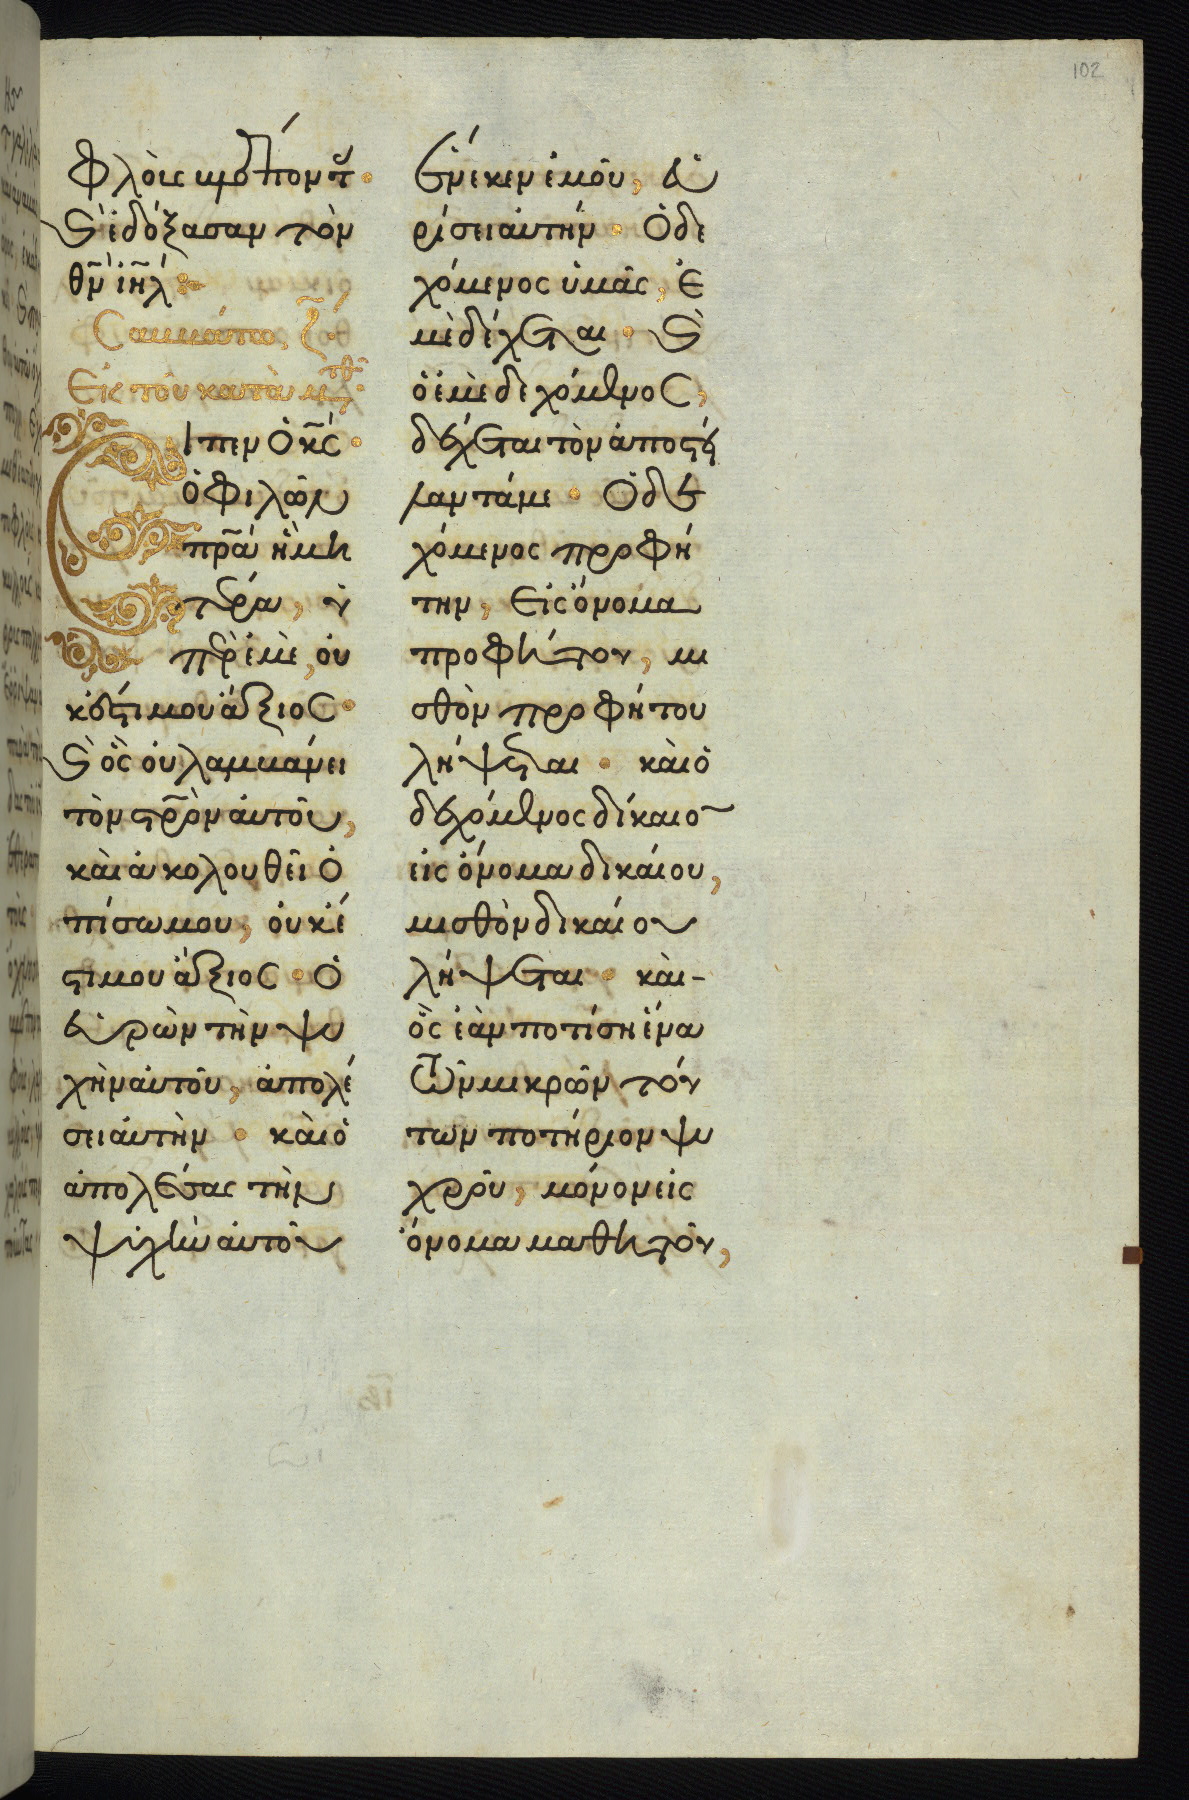 102
φλοὺς βλέποντ(ας)·
Ϗ ἐδόξασαν τὸν
θν̅ ἰη̅λ
Σαββάτω ζ̅
Ἐκ τοῦ κατὰ μτθ
Εἶπεν ὁ κς̅·
ὁ φιλῶν
πρ̅α ἢ μη
τέρα, ὑ
πὲρ ἐμὲ, οὐ
κ ἔστι μου ἄξιος·
Ϗ ὃς οὐ λαμβάνει
τὸν στρ̅ὸν αὐτοῦ,
καὶ ἀκολουθεῖ ὀ
πίσω μου, οὐκ ἔ
στι μου ἄξιος· Ὁ
εὑρὼν τὴν ψυ
χὴν αὐτοῦ, ἀπολέ
σει αὐτὴν· καὶ ὁ
ἀπολέσας τὴν
ψυχὴν αὐτοῦ
ἕνεκεν ἐμοῦ, εὑ
ρήσει αὐτήν· Ὁ δε
χόμενος ὑμᾶς, ἐ
μὲ δέχεται· Ϗ
ὁ ἐμὲ δεχόμενος,
δέχεται τὸν ἀποστεί
λαντά με· Ὁ δε
χόμενος προφή
την, εἰς ὄνομα
προφήτου, μι
σθὸν προφήτου
λήψεται· καὶ ὁ
δεχόμενος δίκαιο̅
εἰς ὄνομα δικαίου,
μισθὸν δικαίου
λήψεται· καὶ-
ὃς ἐὰν ποτίσῃ ἕνα
τῶν μικρῶν τού
των ποτήριον ψυ
χροῦ, μόνον εἰς
ὄνομα μαθητοῦ,